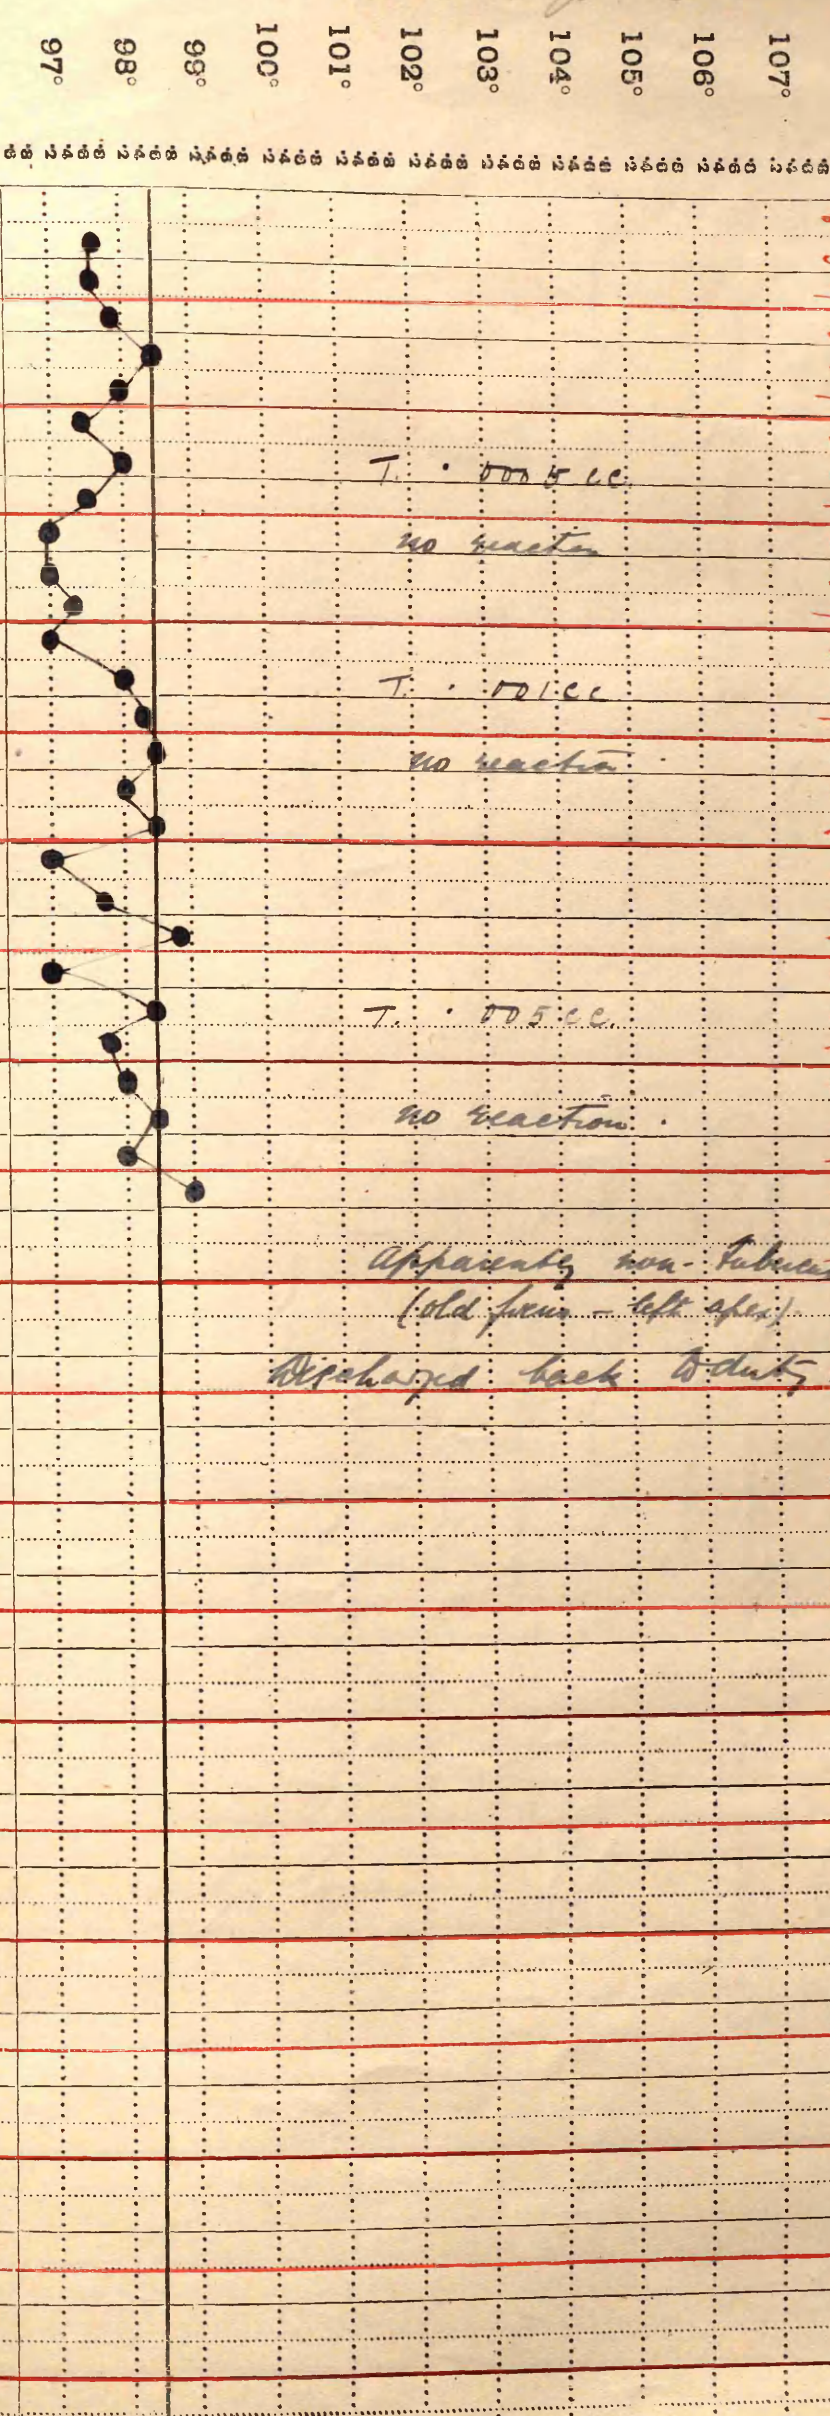 97° 98° 99° 100° 101° 102° 103° 104° 105° 106° 107°
T. · 0005 cc.
no reaction
T. · 001 cc
no reaction
T. · 005 cc.
no reaction.
Apparently non-
(old focus – left apex)
Discharged back to duty